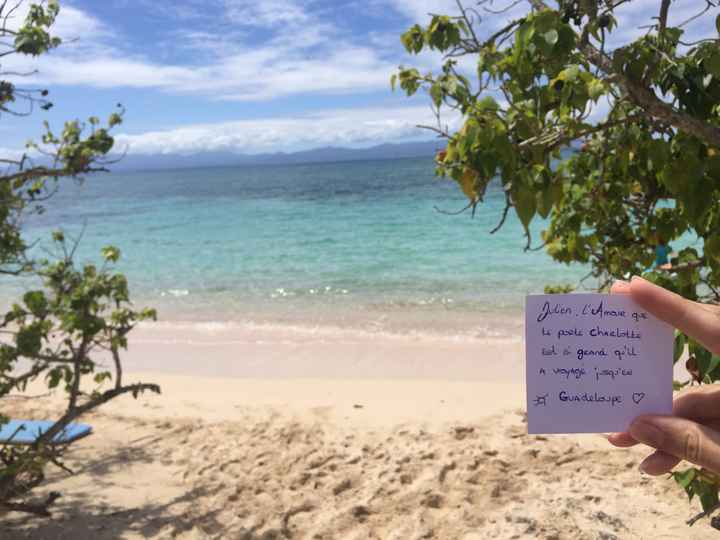 Julien, l'Amour que
te porte Charlotte
est si grand qu'il
a voyagé jusqu'en
Guadeloupe ♡